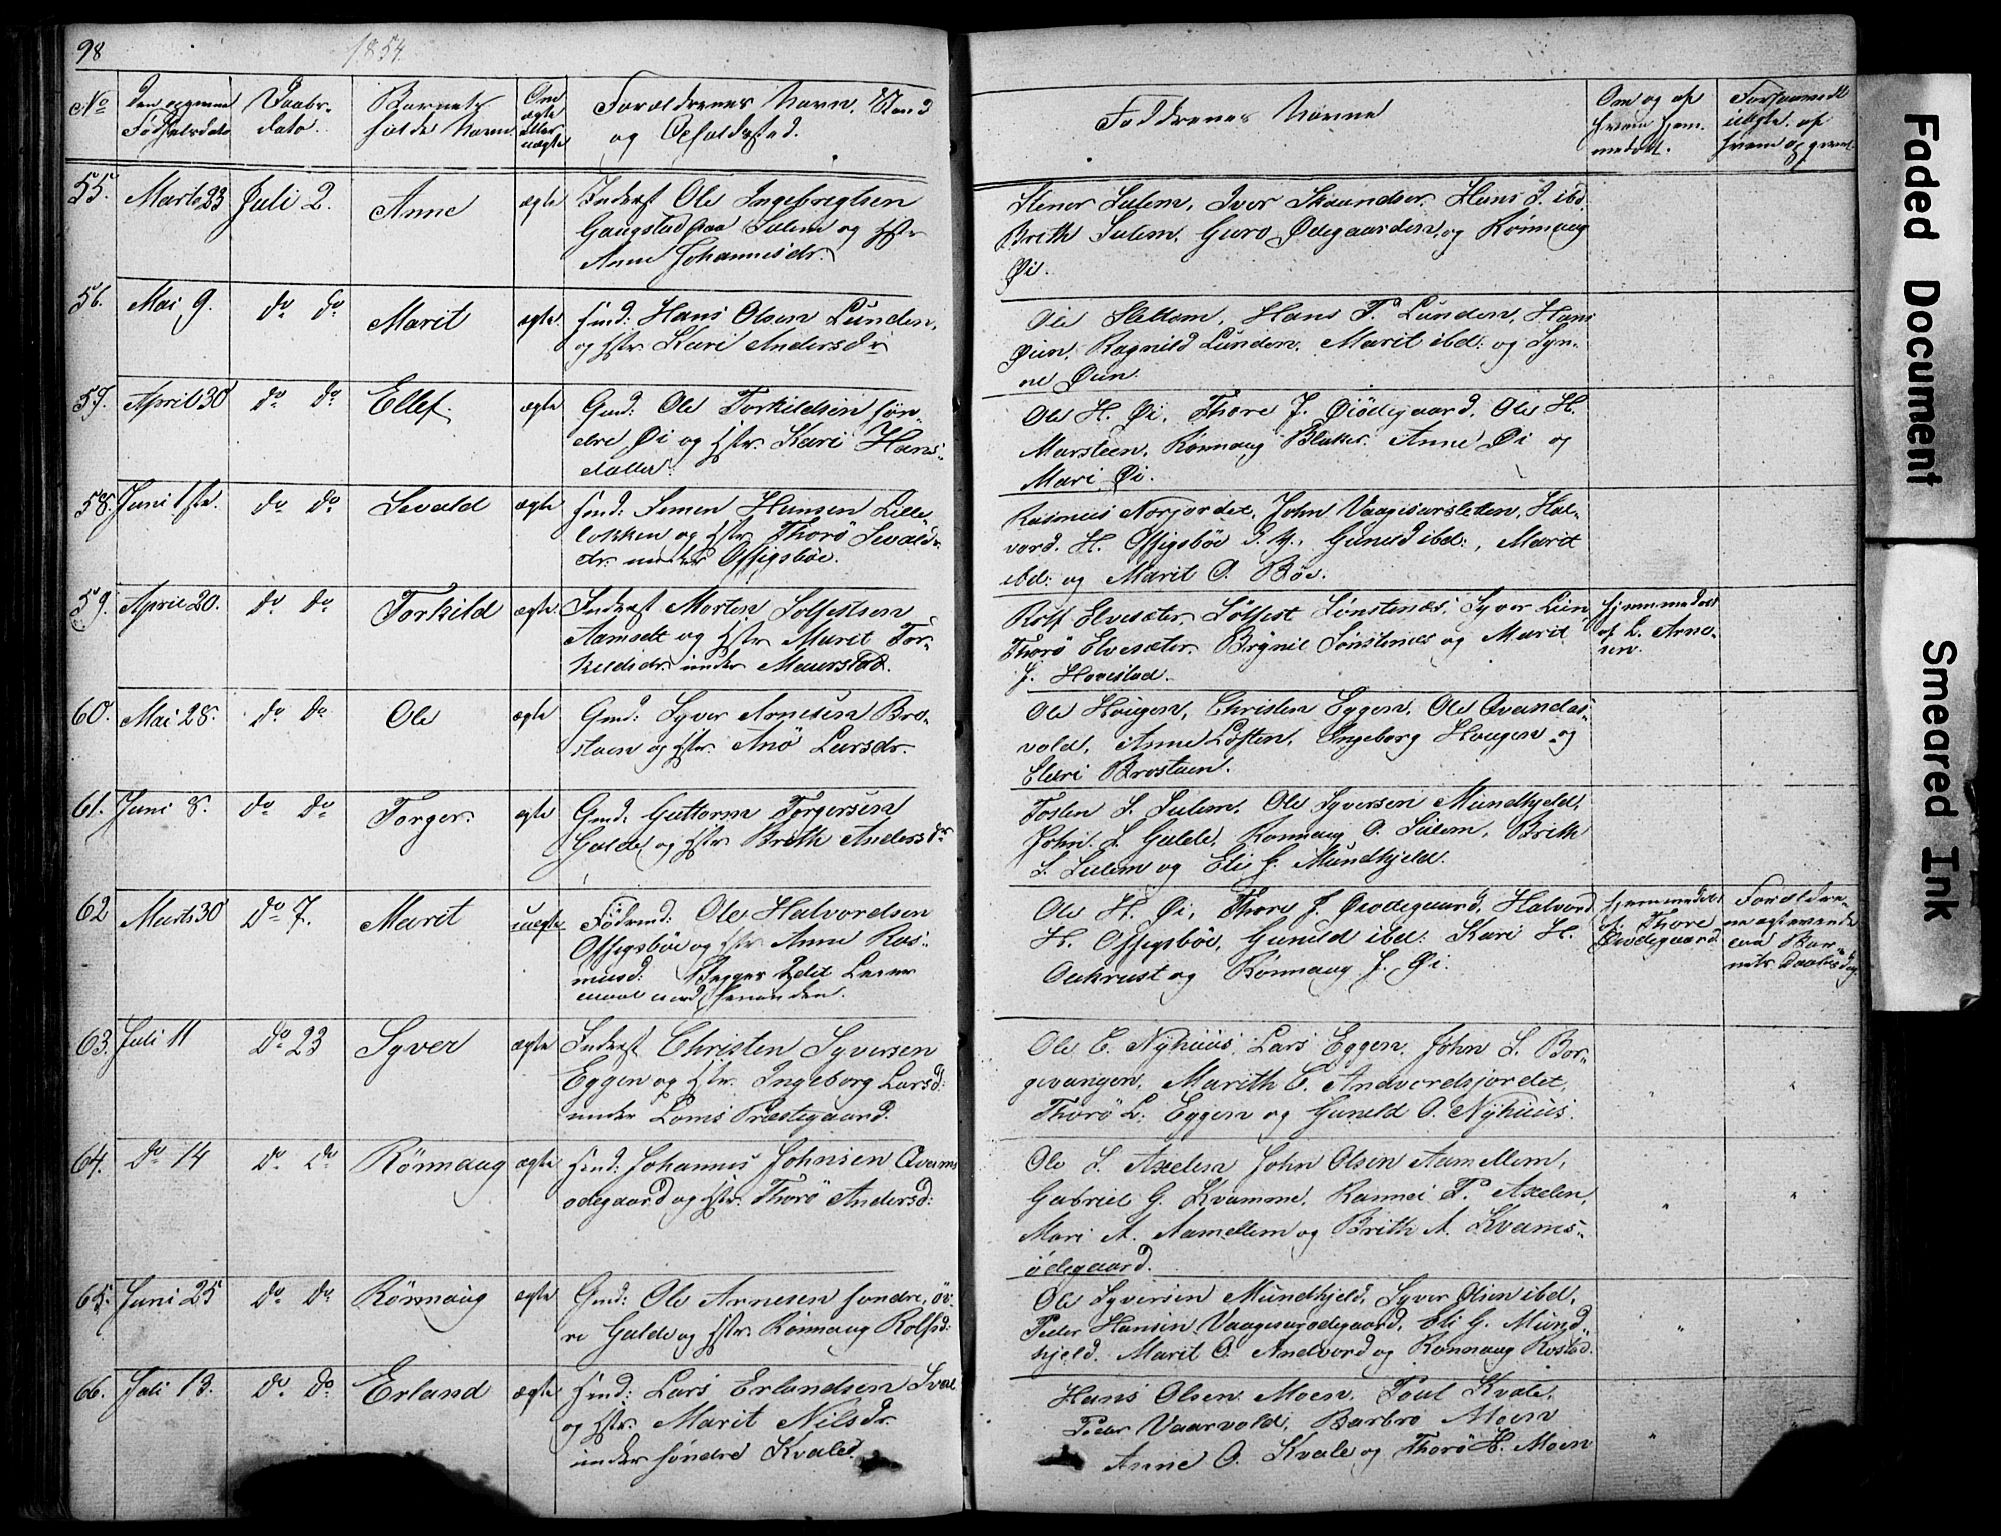 98
1854.
No
Den opgivne
Fødselsdato
Daabs-
dato.
Barnets
fulde Navn
Om
ægte
eller
uægte
Forældrenes Navn, Stand
og Opholdssted.
Faddrenes Navne
Om og af
hvem hjem-
medøbt.
55. Marts 23 Juli 2. Anne ægte Inderst Ole Ingebregtsen
Gaugstad paa Sulem og Hstr
Anne Johannisdr.
Stener Sulem, Iver Skaundser, Hans J. ibd.
Brith Sulem, Guro Ødegaarden, og Rønnaug
Øi.
56. Mai 9. do do Marit ægte Hmd: Hans Olsen Lunden,
og Hstr Kari Andersdr
Ole Slettom, Hans P. Lunden, Hans
Øien, Ragnild Lunden, Marit ibd: og Syn-
ne Øien.
57. April 30 do do Ellef. ægte Gmd: Ole Torkildsen søn-
dre Øi og Hstr. Kari Hans-
datter.
Ole H. Øi, Thore J. Øiødegaard, Ole H.
Marsteen, Rønnaug Blaker, Anne Øi og
Mari Øi.
58. Juni 1ste. do do Sevald ægte Hmd: Simen Hansen Lille
løkken og Hstr Thorø Sevalds-
dr. under Offigsbøe.
Rasmus Norjordet, John Vaagisarsletten, Hal-
vord. H. Offigsbøe d. y., Gunild ibd:, Marit
ibd: og Marit O. Bøe.
59. April 20. do do Torkild ægte Inderst Morten Solfestsen
Aamodt og Hstr Marit Tor-
kildsdr. under Maurstad.
Rolf Elvesæter, Solfest Sønstenæs, Syver Lien
Thorø Elvesæter, Brynil Sønstenæs og Marit
J. Hovistad.
hjemmedøbt
af L. Arne-
sen.
60. Mai 28. do do Ole ægte Gmd: Syver Arnesen Bro-
staen og Hstr. Anø Larsdr.
Ole Hougen, Christen Eggen, Ole Qvandes-
vold, Anne Loften, Ingeborg Haugen og
Elari Brostuen.
61. Juni 8. do do Torger. ægte Gmd. Guttorm Torgersen
Galde og Hstr Brith Andersdr
Tosten S. Sulem, Ole Syversen Mundhjeld,
John. S. Galde, Rønnaug O. Sulem, Brith
S. Sulem og Eli G. Mundhjeld.
62 Marts 30 do 7. Marit uægte Fødrmd: Ole Halvordsen
Offigsbøe og Hstr Anne Ras-
musd. Begges 2det Leier
maal med hinanden.
Ole H. Øi, Thore J Øiødegaard, Halvord
H. Offigsbøe, Gunild ibd: Kari H.
Aakrust og Rønnaug J. Øi.
hjemmedøbt
af Thore
Øiødegaard
Forældre-
ne ægteviede
paa Bar-
nets Daabsdag
63. Juli 11 do 23 Syver ægte Inderst Christen Syversen
Eggen og Hstr. Ingeborg Larsd:
under Loms Præstegaard.
Ole C. Nyhuus, Lars Eggen, John S. Bor-
gevangen, Marith C. Andvordsjordet,
Thorø L. Eggen og Gunild O. Nyhuus.
64. do 14 do do Rönnaug ægte Hmd: Johannes Johnsen Qvams
ødegaard og Hstr. Thorø Andersd:
Ole S. Axelen John Olsen Aamellem,
Gabriel G. Kvamme, Rannei P. Axelen,
Mari A. Aamellem og Brith A. Kvams-
ødegaard.
65. Juni 25 do do Rönnaug ægte Gmd: Ole Arnesen søndre, öv-
re Galde og Hstr. Rønnaug Rolfsd:
Ole Syversen Mundhjeld, Syver Olsen ibd,
Peder Hansen Vaagesarødegaard, Eli G. Mund-
hjeld. Marit O. Andvord og Rønnaug Rostad.
66. Juli 13. do do Erland ægte Hmd: Lars Erlandsen Svee
og Hstr. Marit Nilsdr.
under søndre Kvale.
Hans Olsen Moen, Poul Kvale,
Peder Vaarvold, Barbro Moen
Anne O. Kvale og Thorø H. Moen
Faded Document
Smeared Ink